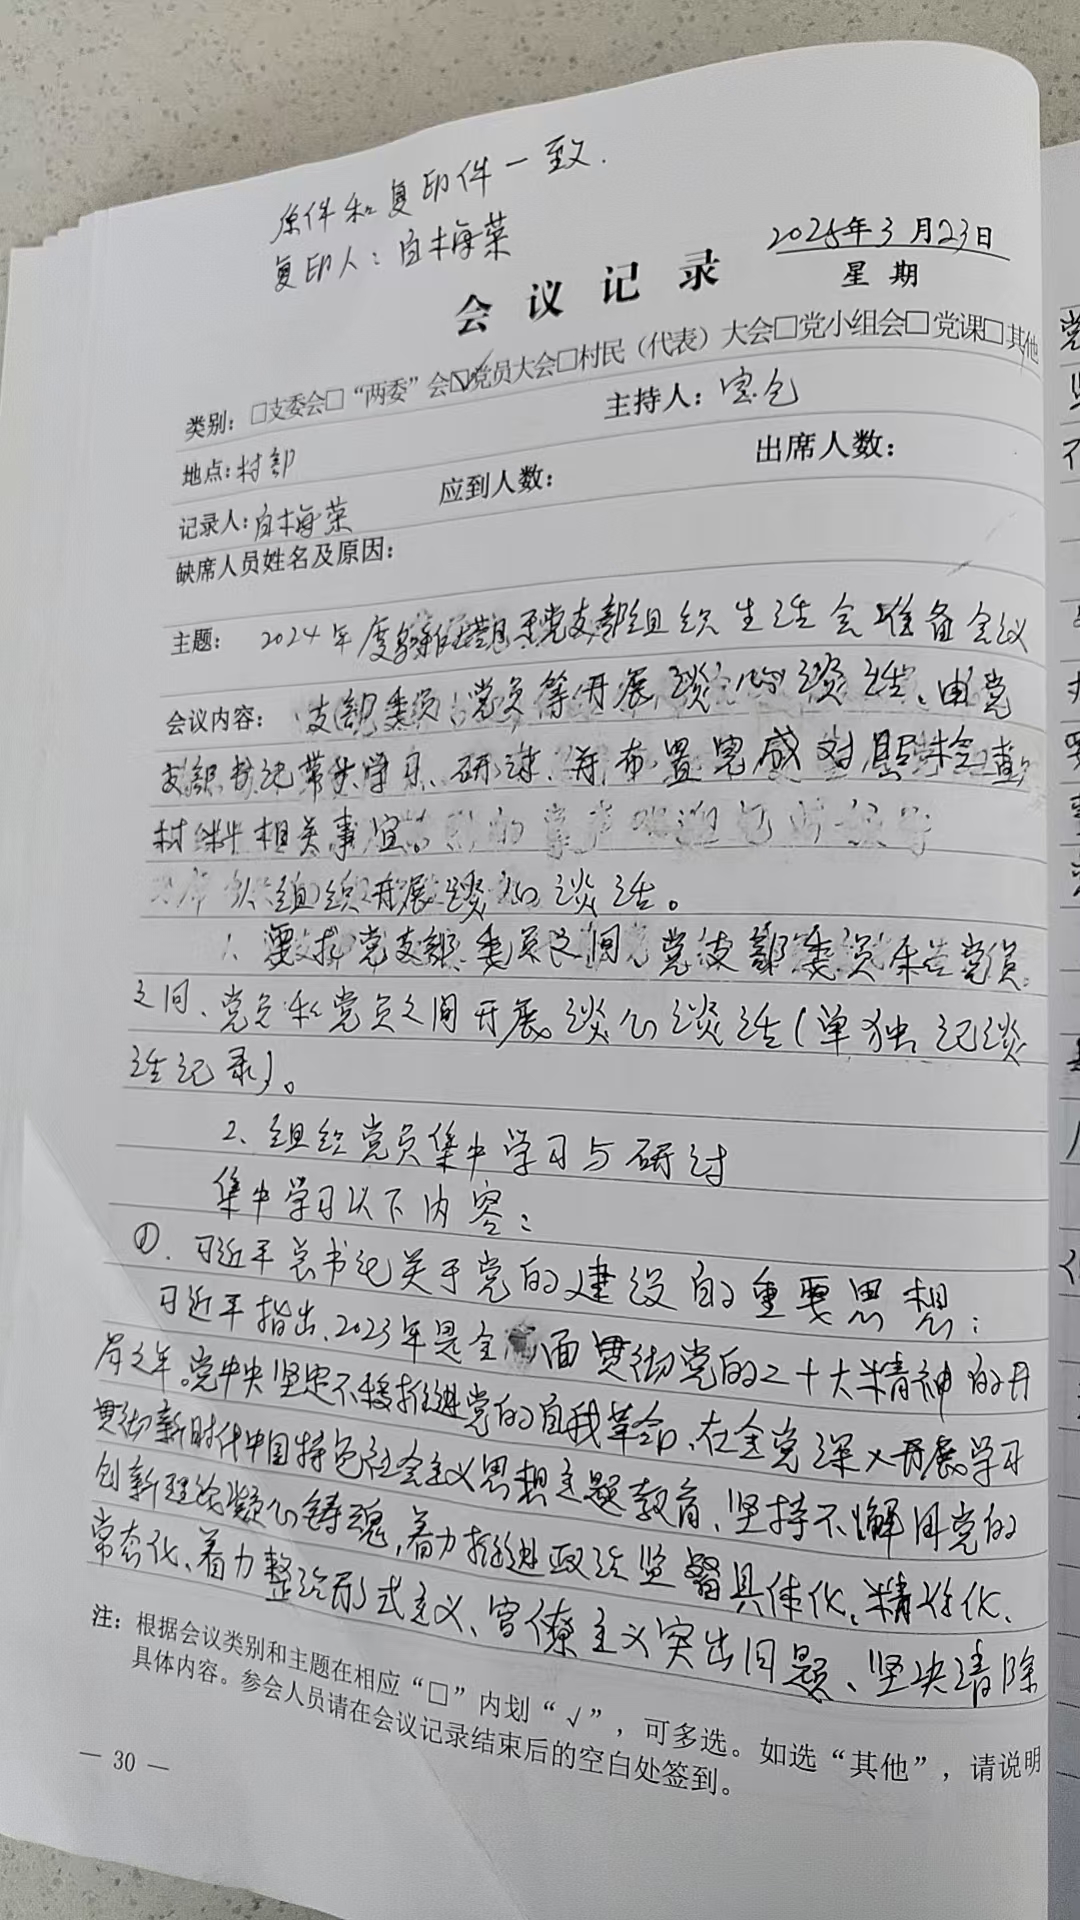 原件和复印件一致.
复印人：白梅荣
2025年3月23日
会议记录 星期
类别：□支委会□“两委”会☑党员大会□村民（代表）大会□党小组会□党课□其他
地点：村部 主持人：宝仓
记录人：白梅荣 应到人数： 出席人数：
缺席人员姓名及原因：
主题： 2024年度 党支部组织生活会准备会议
会议内容： 支部委员、党员等开展谈心谈话、由党
支部书记带头学习、研讨、并布置完成对照检查
材料相关事宜。
组织开展谈心谈话。
1、要求党支部委员之间、党支部委员和党员
之间、党员和党员之间开展谈心谈话（单独记谈
话记录）。
2、组织党员集中学习与研讨
集中学习以下内容：
①、习近平总书记关于党的建设的重要思想：
习近平指出、2023年是全面贯彻党的二十大精神的开
局之年。党中央坚定不移推进党的自我革命、在全党深入开展学习
贯彻新时代中国特色社会主义思想主题教育、坚持不懈用党的
创新理论凝心铸魂，着力推进政治监督具体化、精准化、
常态化、着力整治形式主义、官僚主义突出问题、坚决清除
注：根据会议类别和主题在相应“□”内划“√”，可多选。如选“其他”，请说明
具体内容。参会人员请在会议记录结束后的空白处签到。
— 30 —